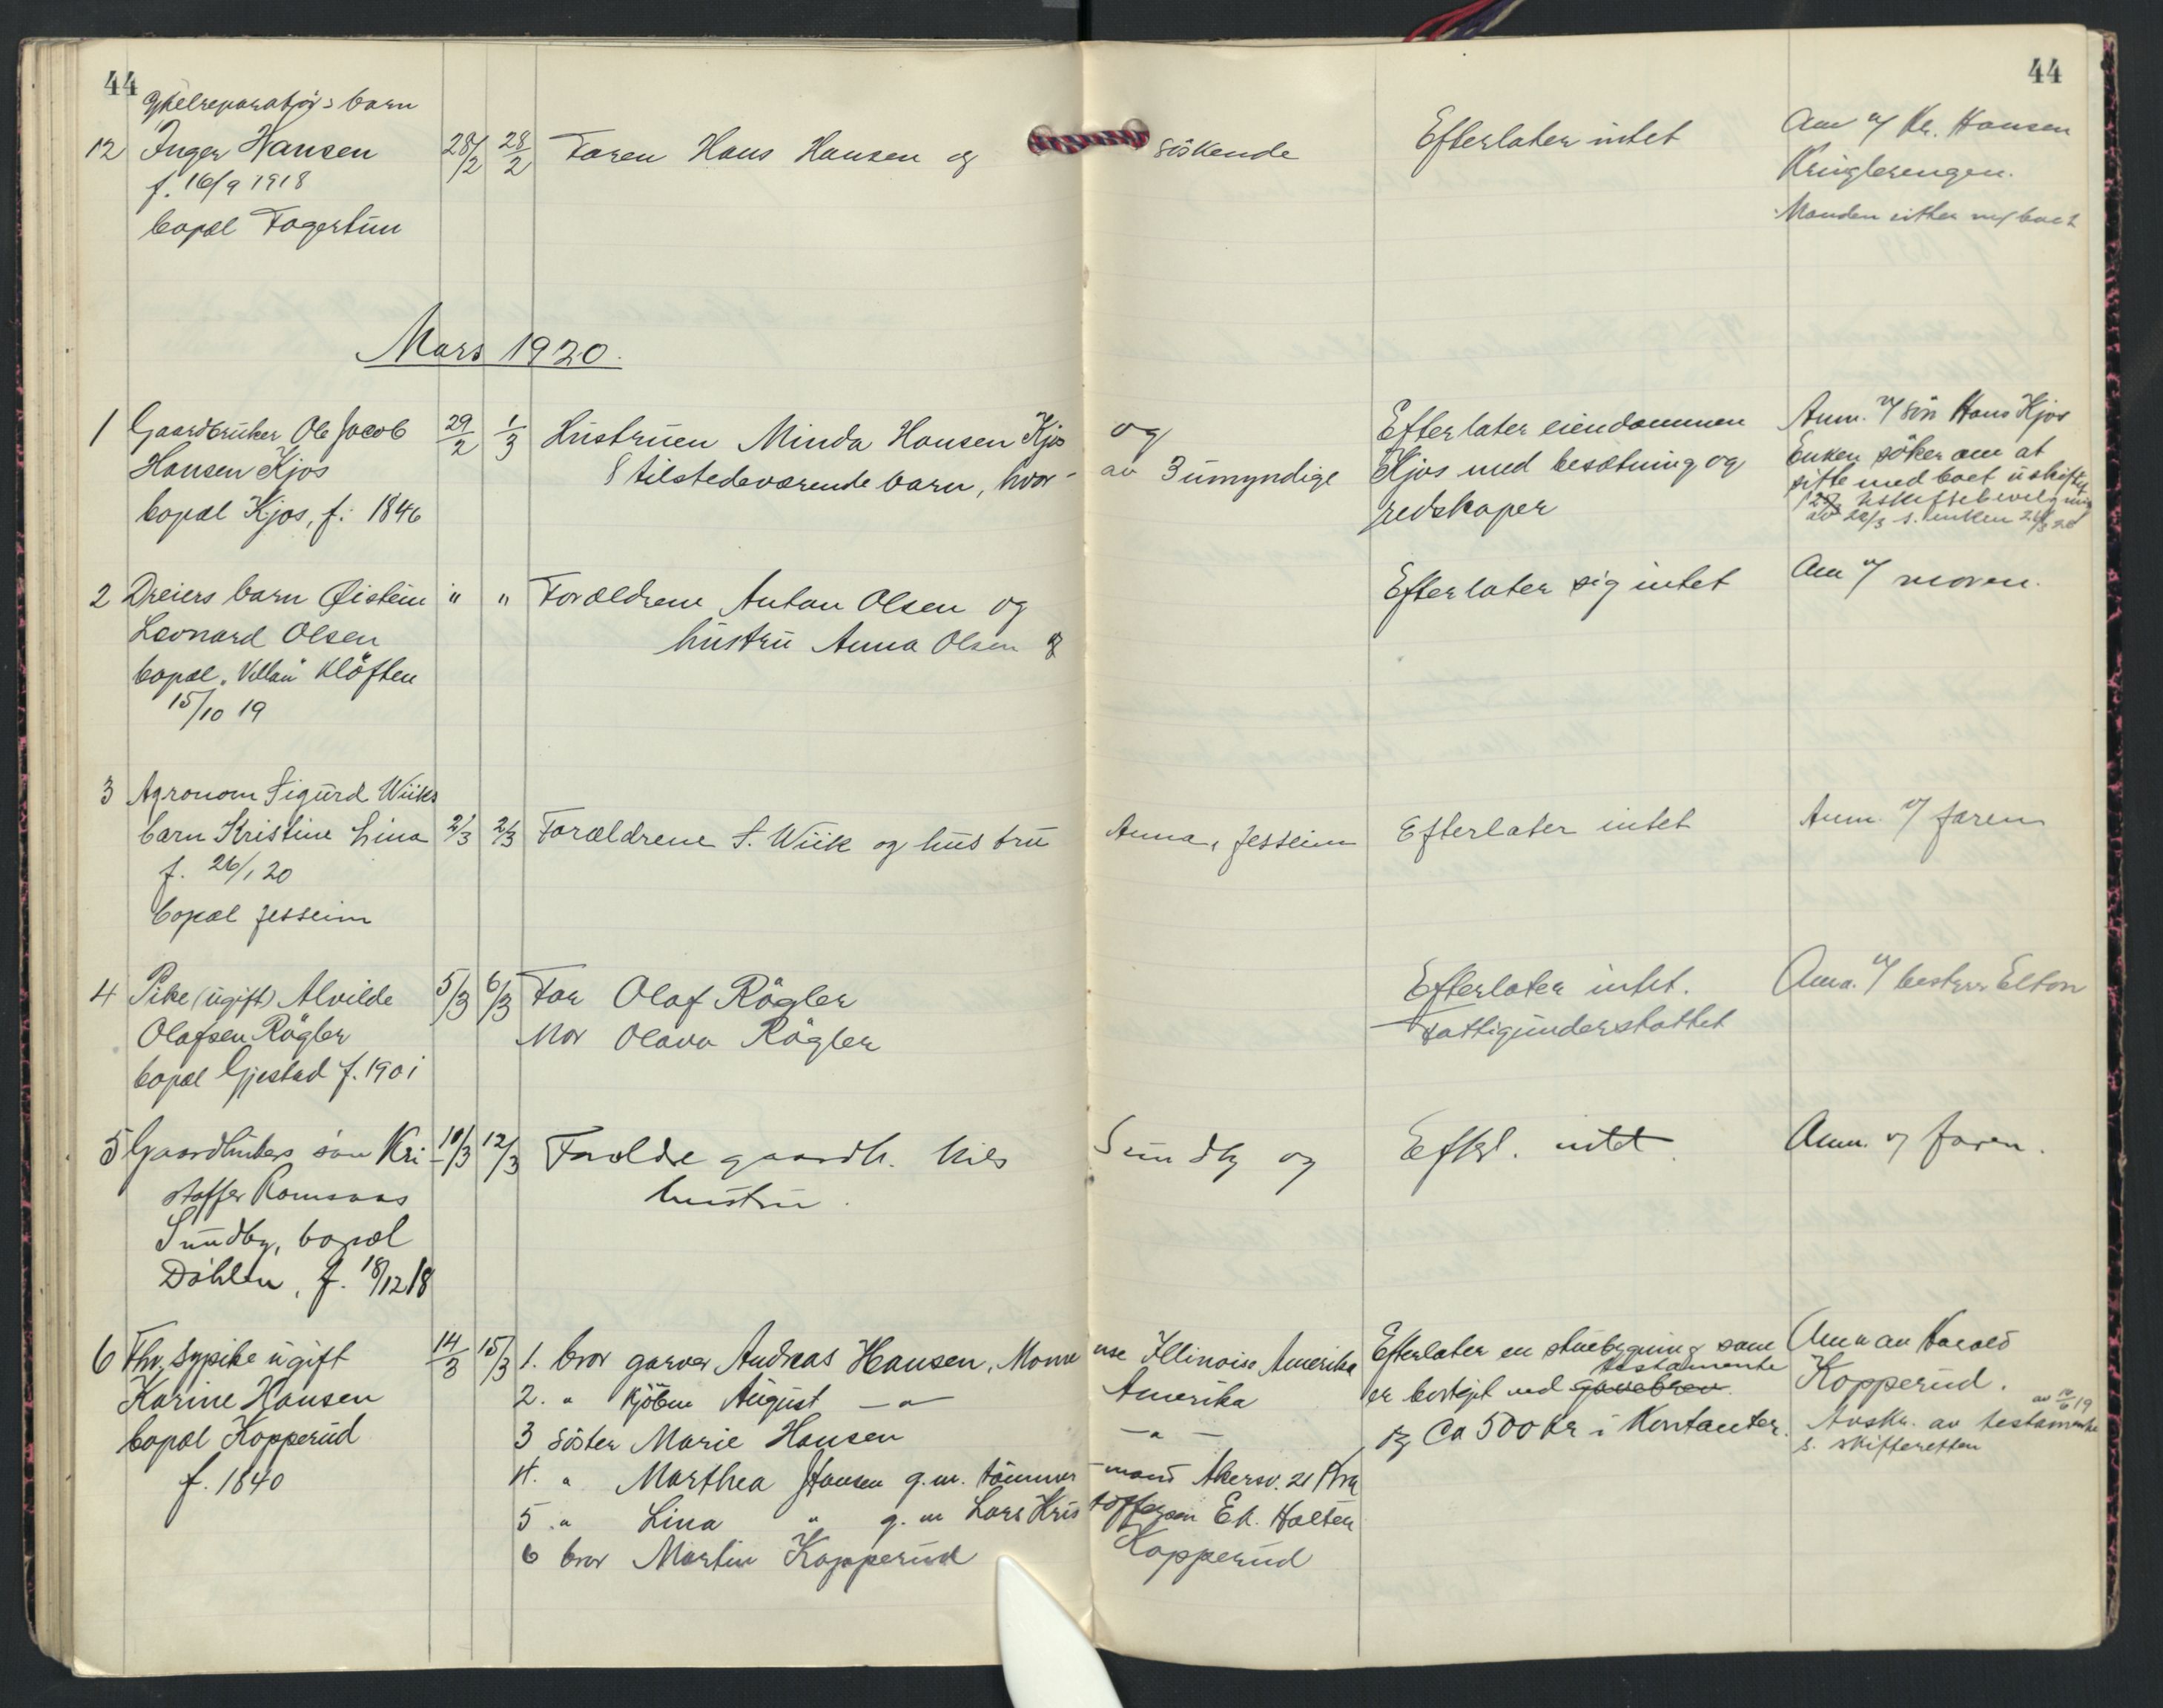 44
44
barn
12 Inger Hansen 28/2 28/2 Faren Hans Hansen og søskende Efterlater intet
f. 16/9 1918
bopæl Fagertun
Kringlerengen.
Mars 1920.
1 Gaardbruker Ole Jacob 29/2 1/3 Hustruen Minda Hansen Kjos og Efterlater eiendommen Anm. v/ søn Hans Kjos
Hansen Kjos 8 tilstedeværende barn, hvor- av 3 umyndige Kjos med besætning og Enken søker om at
bopæl Kjos, f. 1846 redskaper sitte med boet uskiftet
2 Dreiers barn Øistein " " Forældrene Anton Olsen og Efterlater sig intet Anm v/ moren.
Leonard Olsen hustru Anna Olsen
bopæl "Villan" Kløften
15/10 19
3 Agronom Sigurd Wiiks
barn Kristine Lina 2/3 2/3 Forældrene S. Wiik og hustru Anna, Jesseim Efterlater intet Anm. v/ faren
f. 26/1 20
bopæl Jesseim
4 Pike (ugift) Alvilde 5/3 6/3 Far Olaf Rögler Efterlater intet. Anm. v/ Elton
Olafsen Rögler Mor Olava Rögler Fattigunderstøttet
bopæl Gjestad f. 1901
5 Gaardbrukers søn Kri- 10/3 12/3 Forældre gaardb. Nils Sundby og Efterl. intet. Anm. v/ faren.
stoffer Romsaas hustru.
Sundby, bopæl
Döhlen, f. 18/12 18
6 Fhv. sypike ugift 14/3 15/3 1. bror garver Andreas Hansen, Mome nse Illinoise Amerika Efterlater en stuebygning som Anm av Harald
Karine Hansen 2. " Kjøbm August —"— Amerika er bortgit ved gavebrev testamente Kopperud.
bopæl Kopperud 3 søster Marie Hansen —"— og Ca 500 kr i Kontanter. Avskr. av testamente av 10/6 19
f. 1840 4. " Marthea Hansen g.m. tømmer- mand Akersv. 21 Kra s. skifteretten
5 " Lina " g.m Lars Kris toffersen Ek. Holter
6 bror Martin Kopperud Kopperud